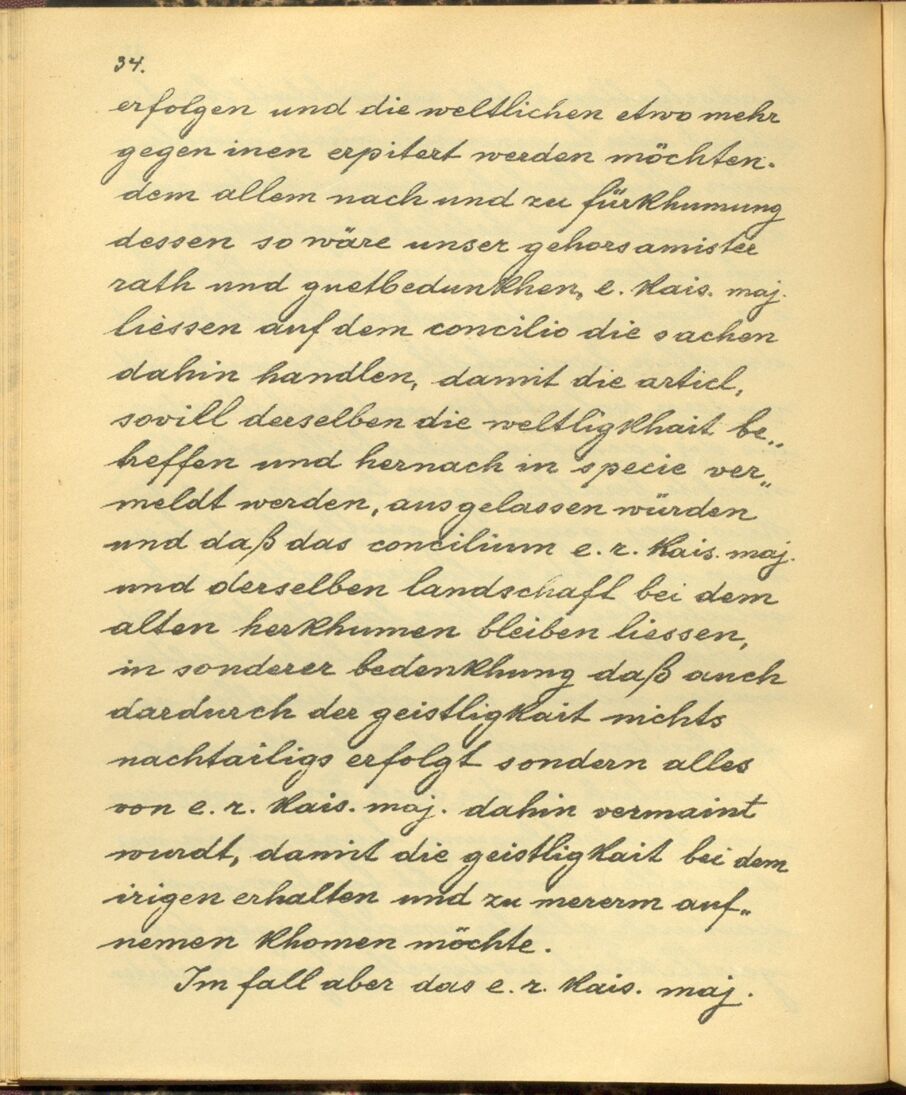 34.
erfolgen und die weltlichen etwo mehr
gegen inen erpitert werden möchten.
dem allem nach und zu fürkhumung
dessen so wäre unser gehorsamister
rath und guetbedunkhen, e. kais. maj.
liessen auf dem concilio die sachen
dahin handlen, damit die articl,
sovill derselben die weltligkhait be„
treffen und hernach in specie ver„
meldt werden, ausgelassen würden
und daß das concilium e. r. kais. maj.
und derselben landschaft bei dem
alten herkhumen bleiben liessen,
in sonderer bedenkhung daß auch
dardurch der geistligkait nichts
nachtailigs erfolgt sondern alles
von e. r. kais. maj. dahin vermaint
wurdt, damit die geistligkait bei dem
irigen erhalten und zu mererm auf„
nemen khomen möchte.
Im fall aber das e. r. kais. maj.